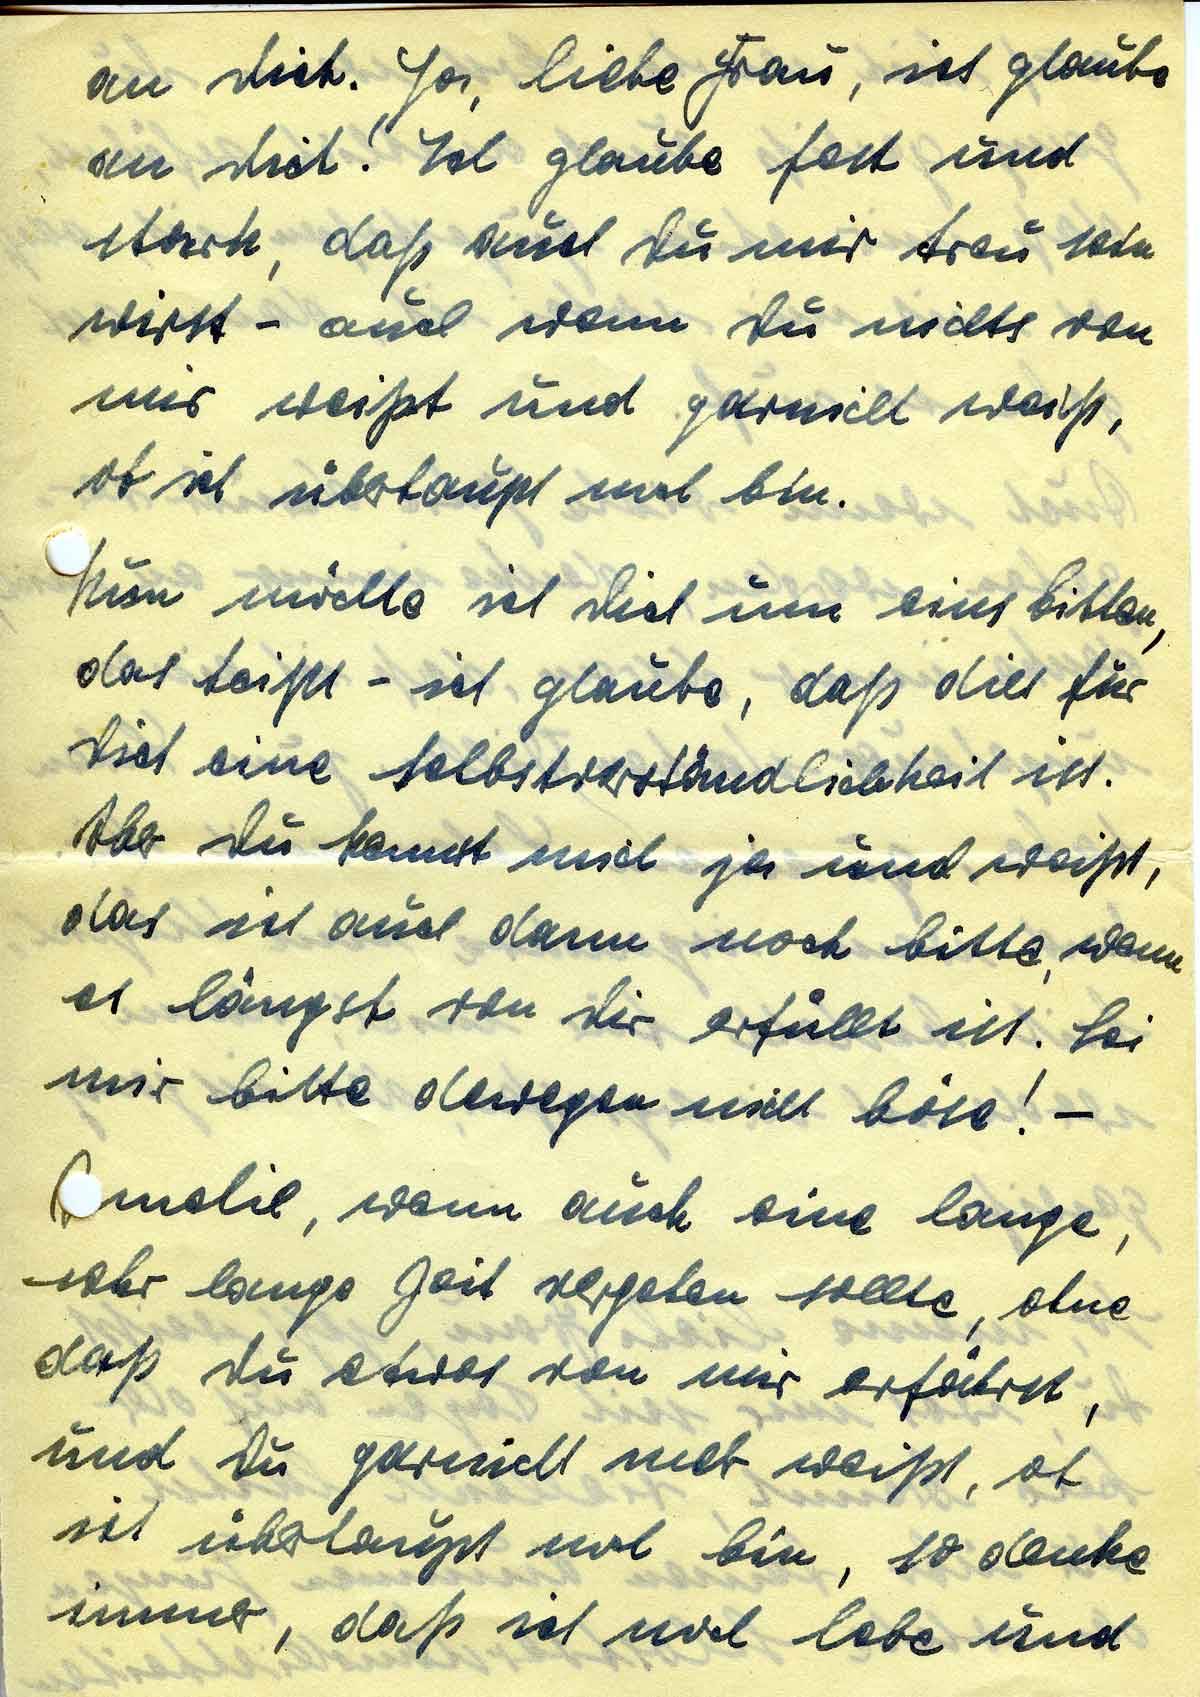 an Dich. Ja, liebe Frau, ich glaube
an Dich! Ich glaube fest und
stark, daß auch Du mir treu sein
wirst - auch wenn Du nichts von
mir weißt und garnicht weißt,
ob ich überhaupt noch bin.
Nun möchte ich Dich um eins bitten,
das heißt - ich glaube, daß dies für
Dich eine Selbstverständlichkeit ist.
Aber Du kennst mich ja und weißt,
das ich auch dann noch bitte, wenn
es längst von Dir erfüllt ist. Sei
mir bitte deswegen nicht böse! -
Amelie, wenn auch eine lange,
sehr lange Zeit vergehen sollte, ohne
daß Du etwas von mir erfährst,
und Du garnicht mehr weißt, ob
ich überhaupt noch bin, so denke
immer, daß ich noch lebe und